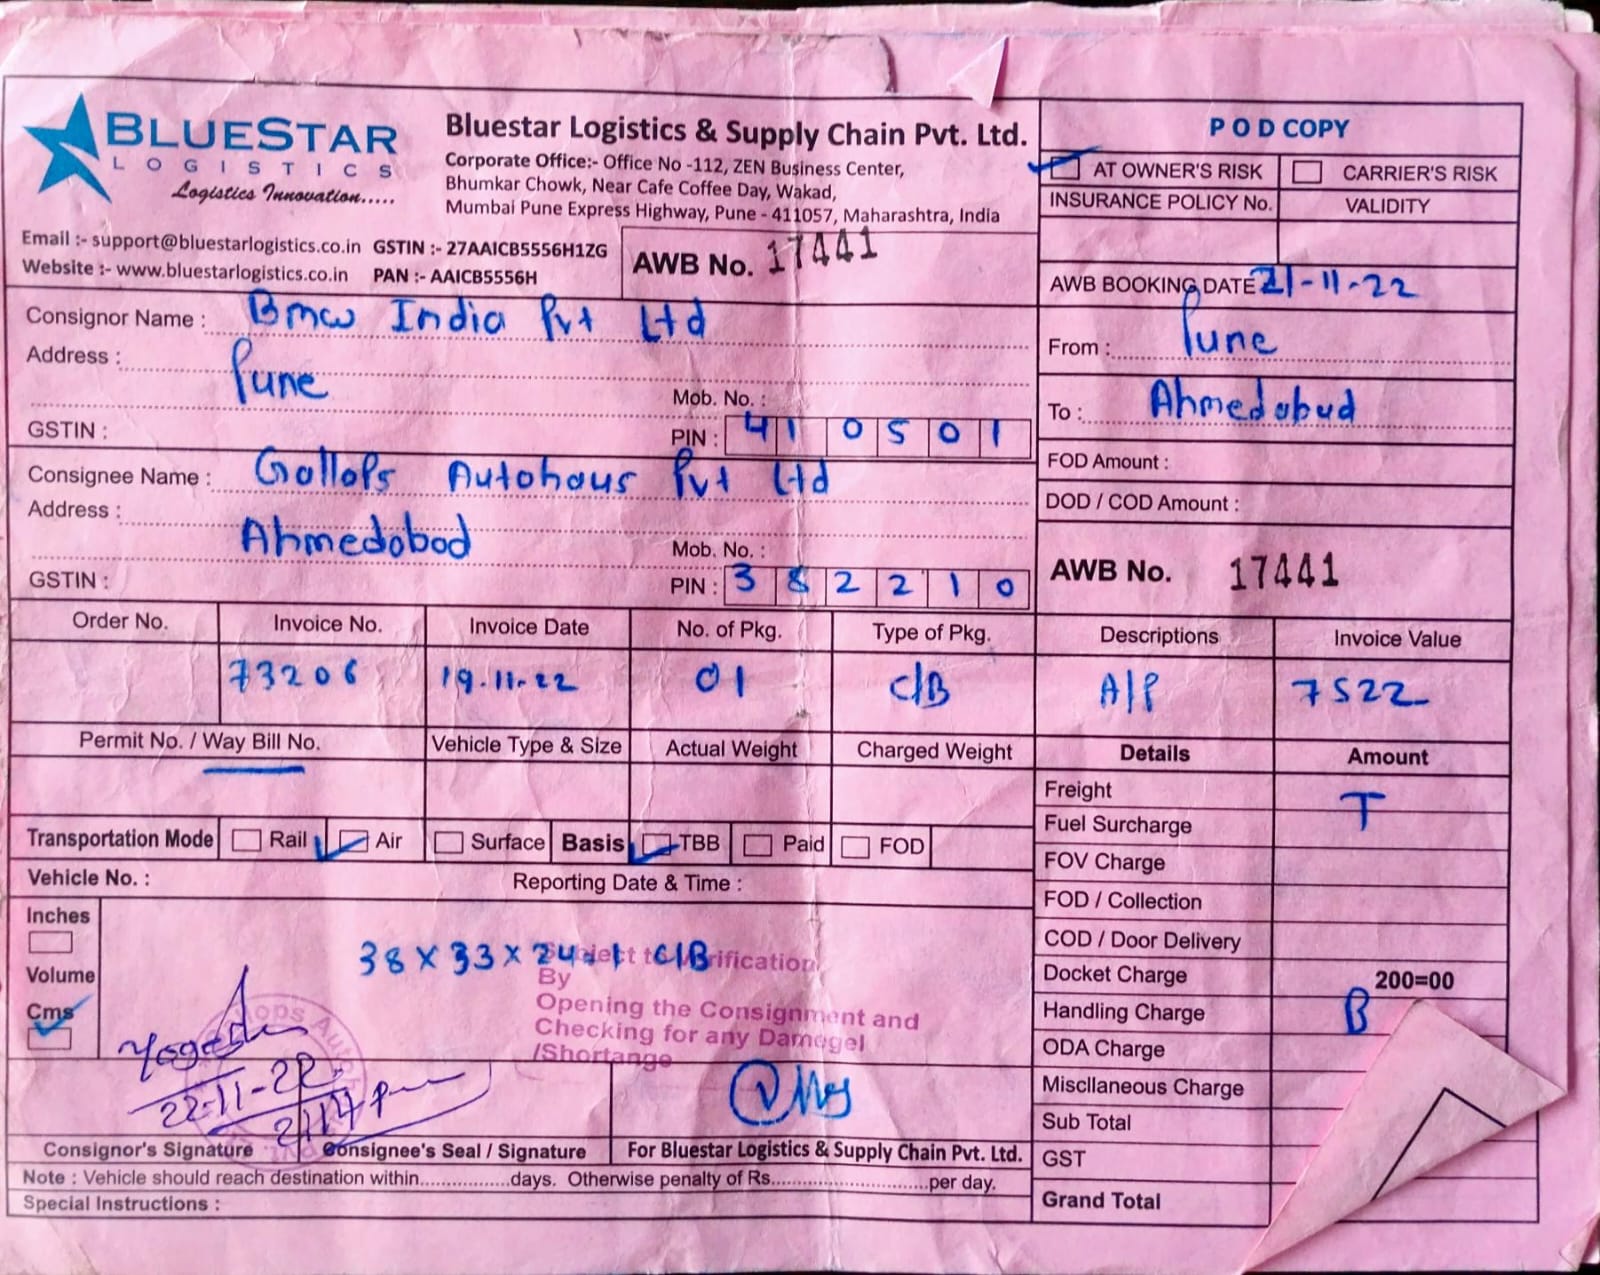 BLUESTAR
LOGISTICS
Logistics Innovation.....
Bluestar Logistics & Supply Chain Pvt. Ltd.
Corporate Office:- Office No -112, ZEN Business Center,
Bhumkar Chowk, Near Cafe Coffee Day, Wakad,
Mumbai Pune Express Highway, Pune - 411057, Maharashtra, India
Email :- support@bluestarlogistics.co.in GSTIN :- 27AAICB5556H1ZG
Website :- www.bluestarlogistics.co.in PAN :- AAICB5556H
AWB No. 17441
POD COPY
AT OWNER'S RISK CARRIER'S RISK
INSURANCE POLICY No. VALIDITY
AWB BOOKING DATE 21-11-22
From : Pune
To : Ahmedabad
FOD Amount :
DOD / COD Amount :
AWB No. 17441
Consignor Name : Bmw India Pvt Ltd
Address : Pune
Mob. No. :
GSTIN : PIN : 410501
Consignee Name : Gallops Autohaus Pvt Ltd
Address : Ahmedabad
Mob. No. :
GSTIN : PIN : 382210
Order No. Invoice No. Invoice Date No. of Pkg. Type of Pkg. Descriptions Invoice Value
73206 19-11-22 01 C/B A/P 7522
Permit No. / Way Bill No. Vehicle Type & Size Actual Weight Charged Weight Details Amount
Transportation Mode Rail Air Surface Basis TBB Paid FOD
Vehicle No. : Reporting Date & Time :
Inches
Volume
Cms
38 x 33 x 24 = 1 C/B
Subject to Verification
By
Opening the Consignment and
Checking for any Damegel
/Shortange
Yogesh
22-11-22
Consignor's Signature Consignee's Seal / Signature For Bluestar Logistics & Supply Chain Pvt. Ltd.
Note : Vehicle should reach destination within.................days. Otherwise penalty of Rs..............................per day.
Special Instructions :
Freight T
Fuel Surcharge
FOV Charge
FOD / Collection
COD / Door Delivery
Docket Charge 200=00
Handling Charge B
ODA Charge
Miscllaneous Charge
Sub Total
GST
Grand Total